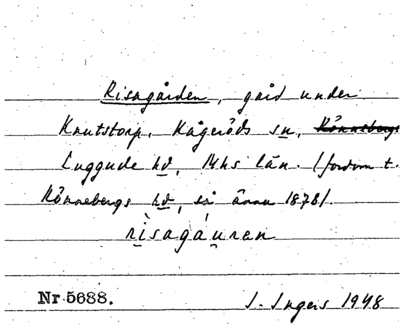 Risagården, gård under
Knutstorp, Kågeröds sn, Rönnebergs
Luggude hd, Mhs län. (fordom t.
Rönnebergs hd, så ännu 1878).
rìsagáuran
Nr 5688. I. Ingers 1948